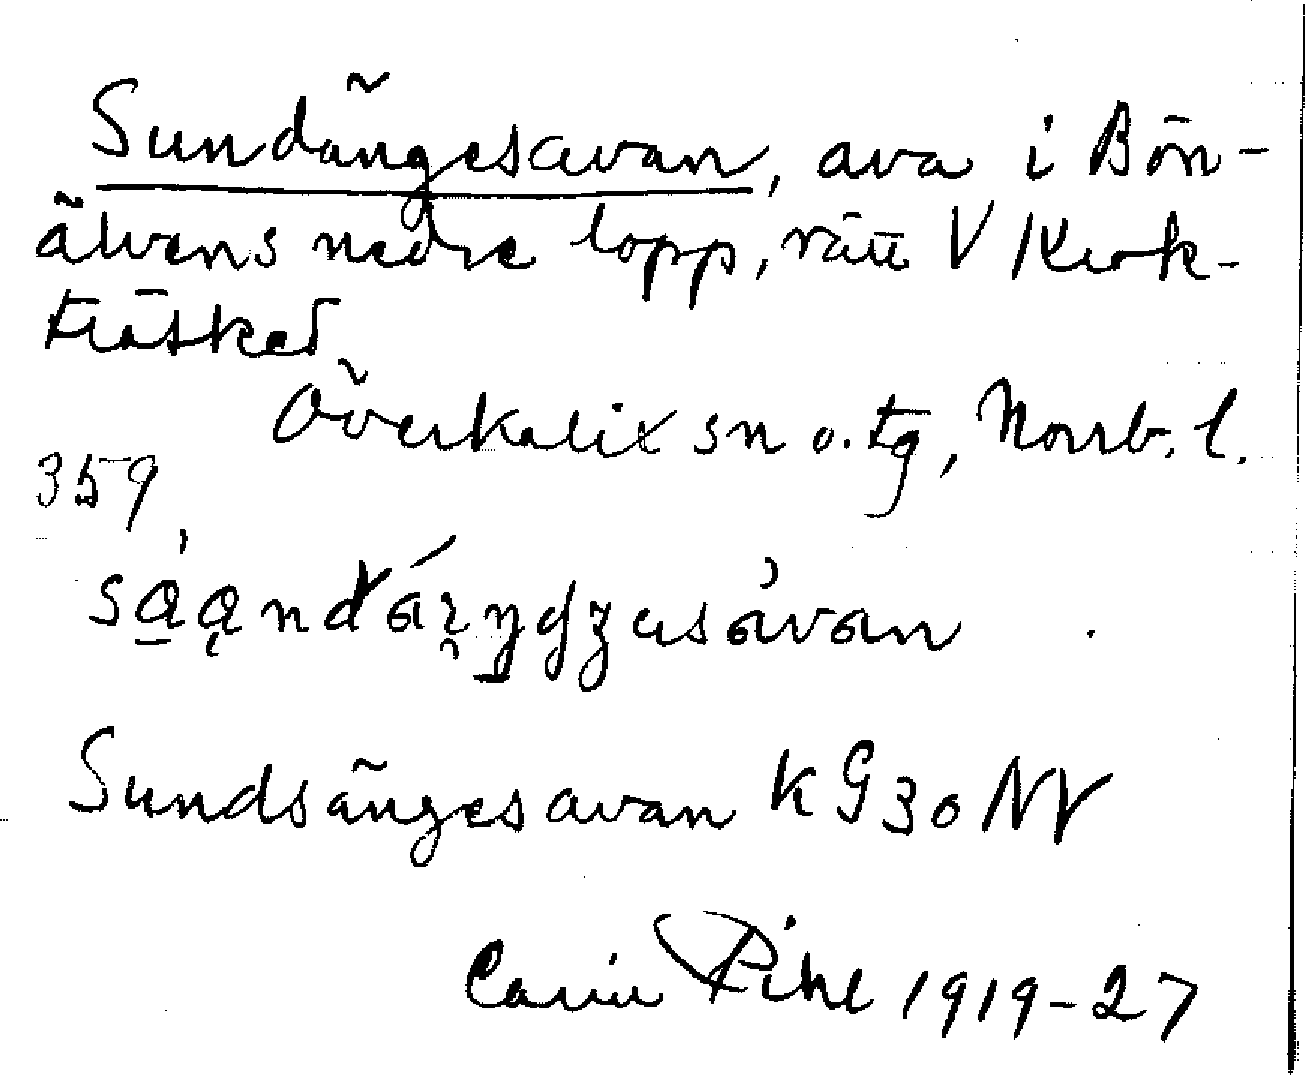 Sundängesavan, ava i Bön-
älvens nedre lopp, rätt V Kyrk-
träsket
Överkalix sn o. tg, Norrb. l.
359
Sundsängesavan KG30 NV
Carin Pihl 1919-27